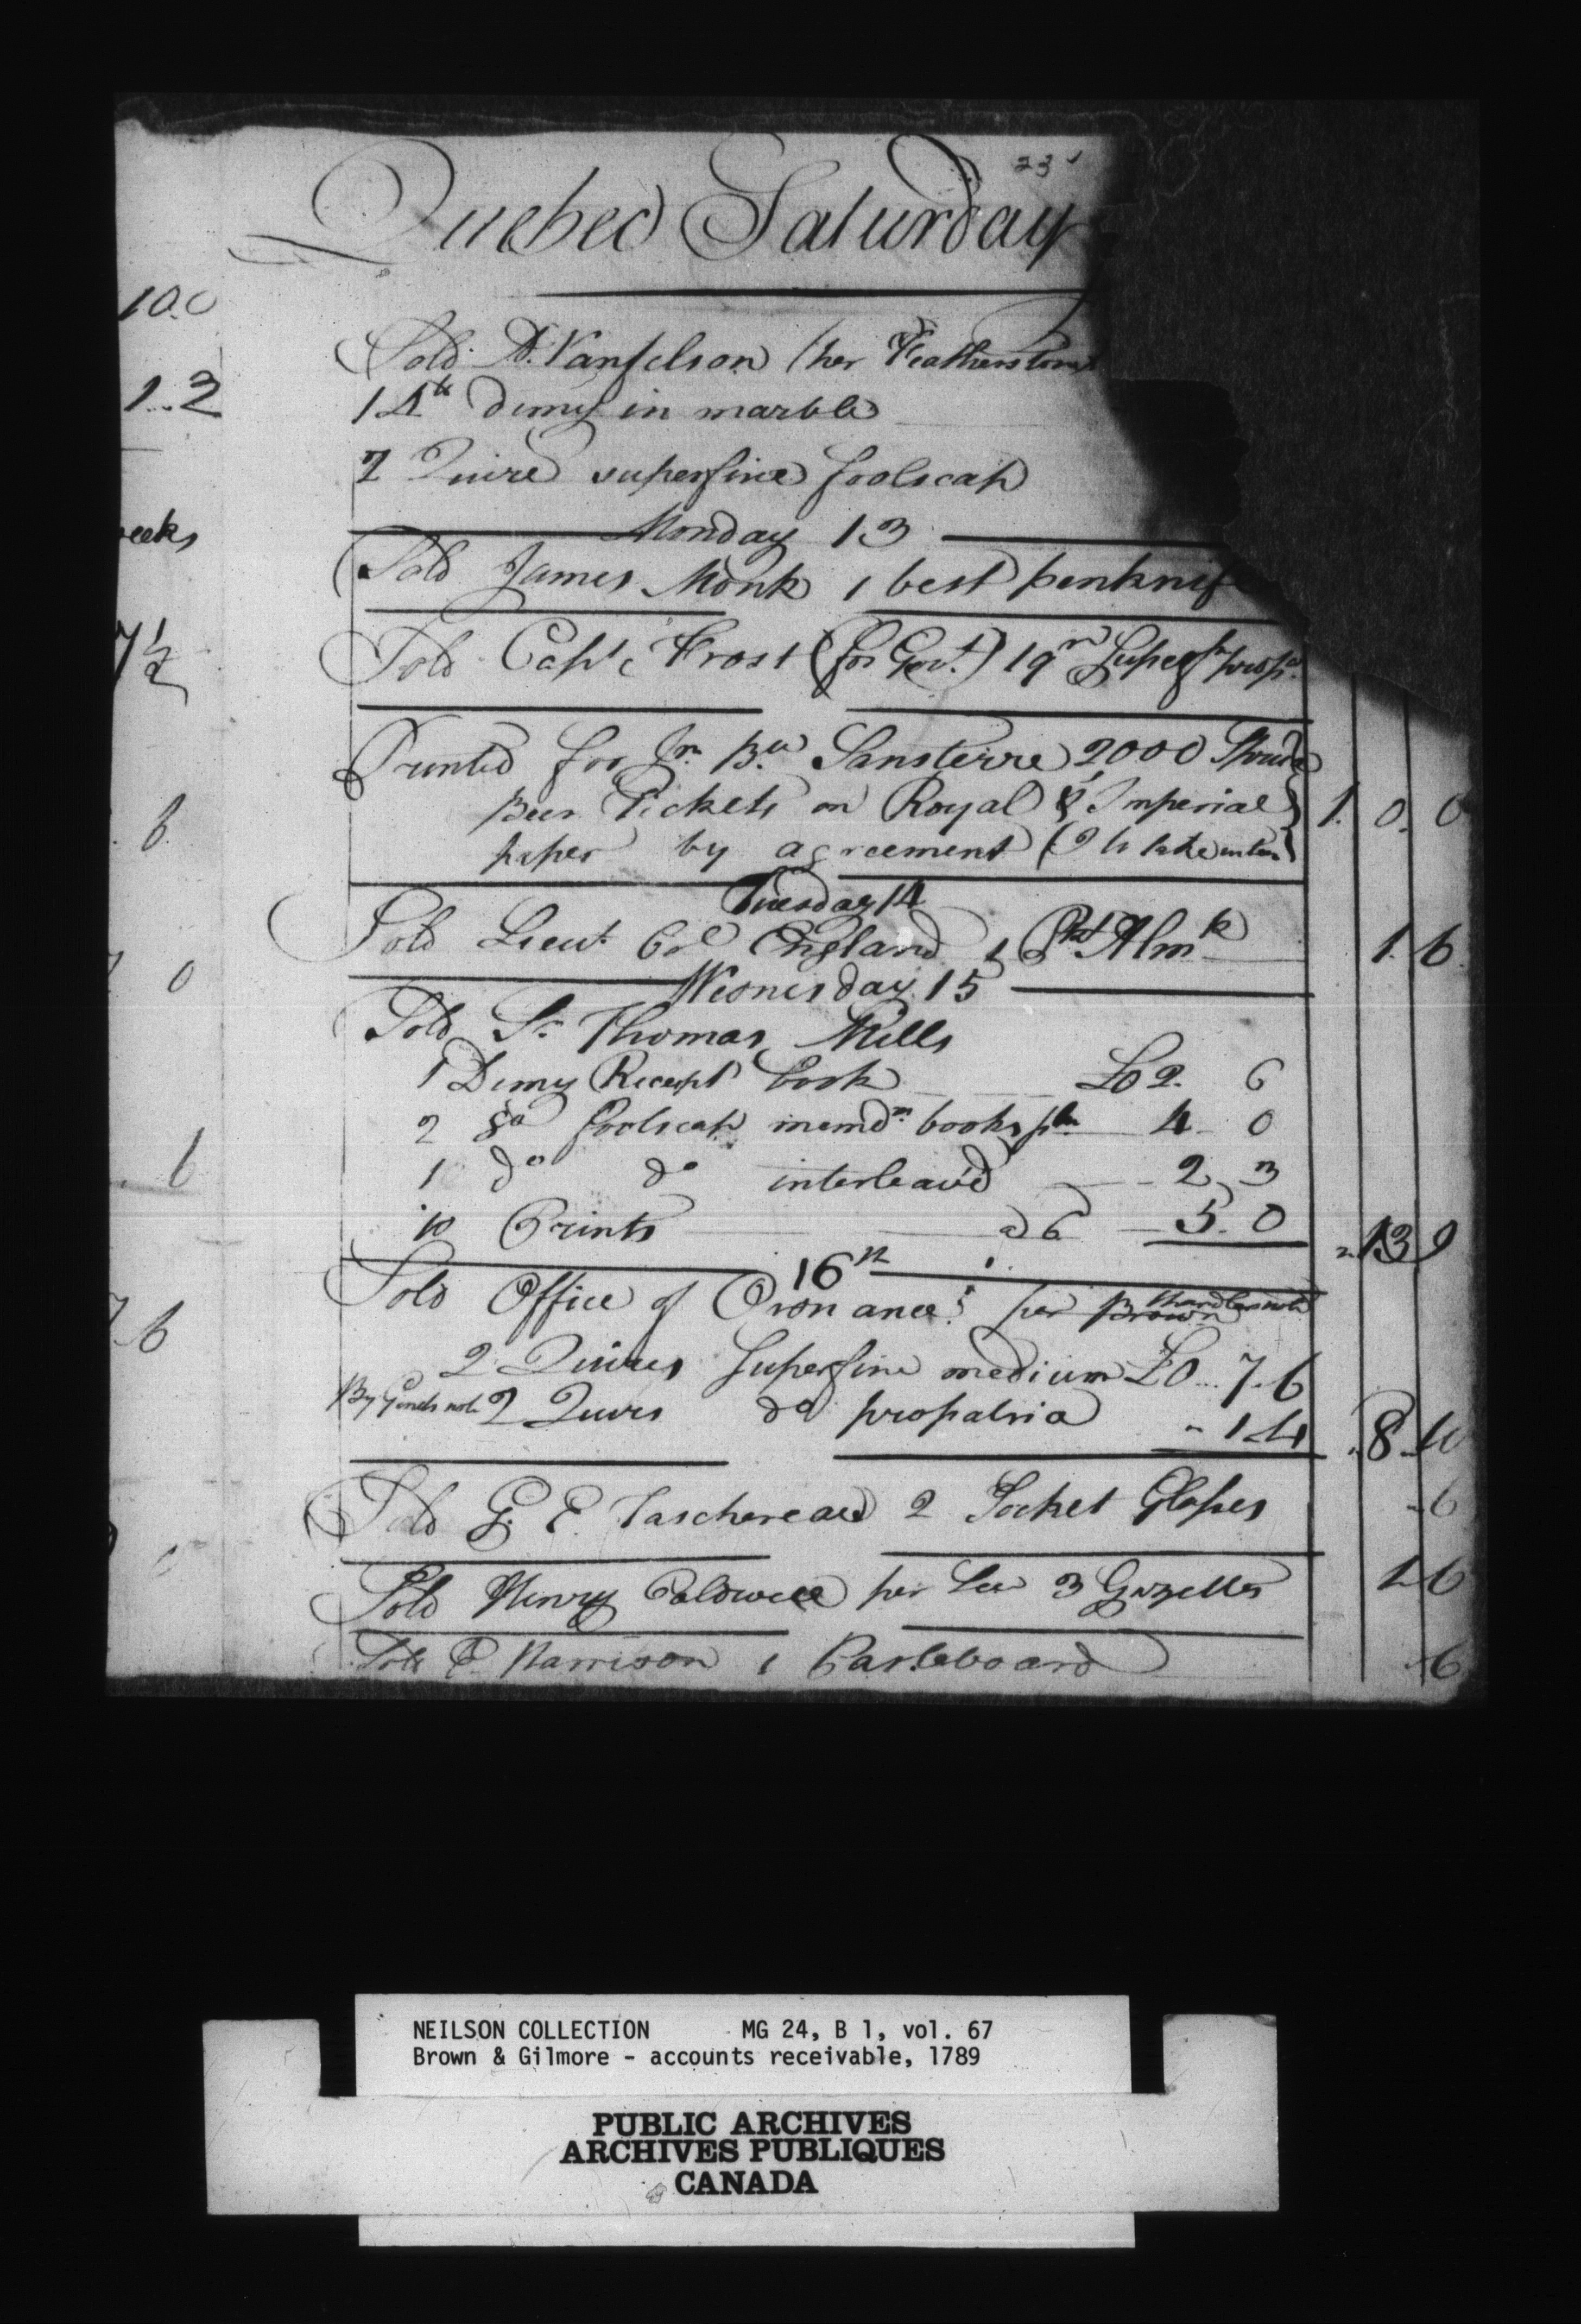 23
Quebec Saturday
Sold A. Vanfelson (per Featherston
1 4to demy in marble
2 Quire superfine foolscap
Monday 13
Sold James Monk 1 best penknife
Sold Capt. Frost (for Govt.) 19 Superf. prop.
Printed for Jn. Bte. Sansterre 2000 Spruce
Beer Tickets on Royal & Imperial
paper by agreement (I to take
1. 0. 0
Tuesday 14
Sold Lieut. Col England 1 Pkt Almk
1. 6
Wednesday 15
Sold Sr. Thomas Mills
1 Demy Receipt book £0 2. 6
2 do foolscap memdm. books pln 4 0
1 do do interleav'd 2 3
10 Prints a 6 5. 0
13 9
16th
Sold Office of Ordnance per Brown Chandlers note
2 Quires Superfine medium £0..7.6
By Genls note 2 Quires do propatria 1 4
8 10
Sold G. E. Taschereau 2 Socket Glasses
6
Sold Henry Caldwell per Lee 3 Gazettes
1 6
Sold E. Harrison 1 Pasteboard
6
10.0
1..2
eeks
7 1/2
6
0
6
6
NEILSON COLLECTION MG 24, B 1, vol. 67
Brown & Gilmore - accounts receivable, 1789
PUBLIC ARCHIVES
ARCHIVES PUBLIQUES
CANADA